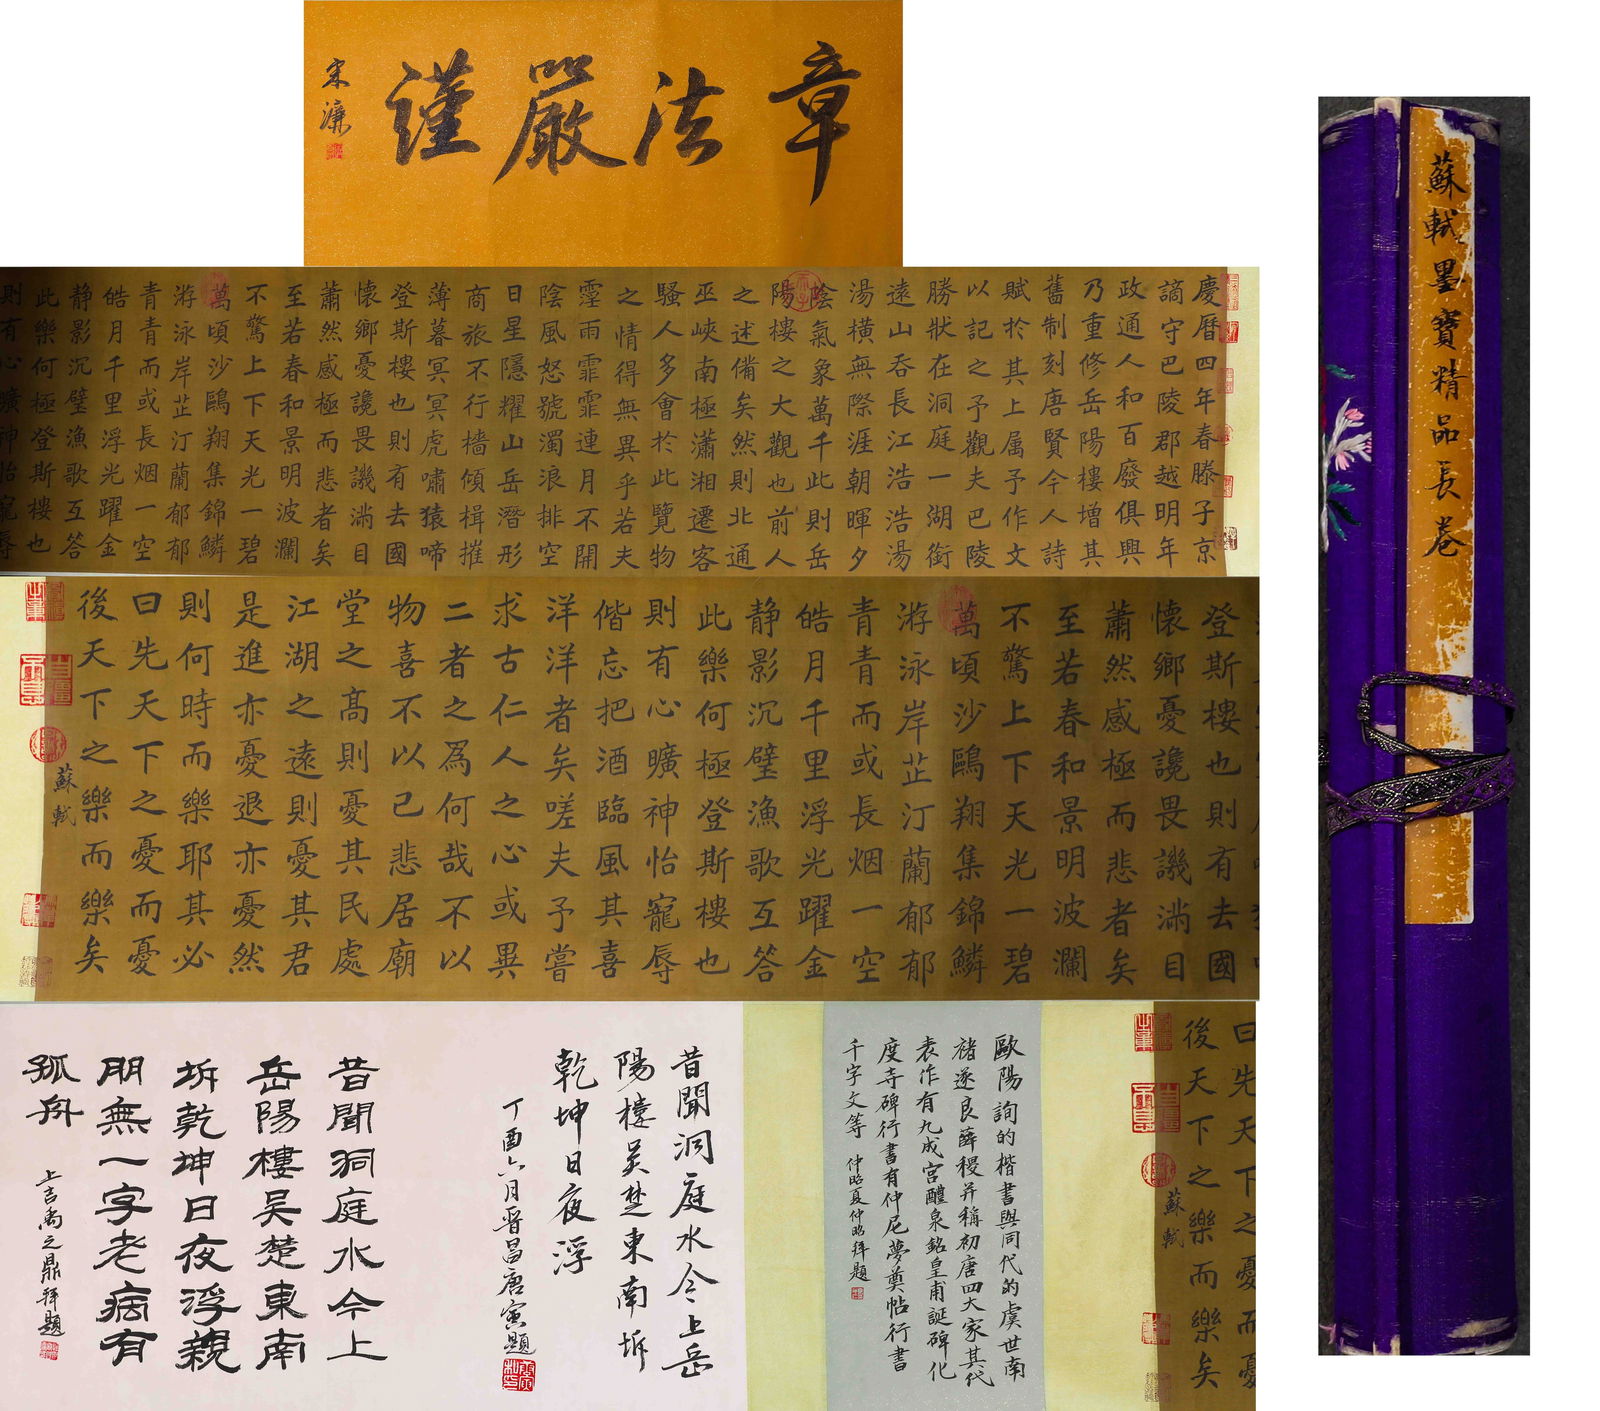 章法嚴謹
宋濂
慶曆四年春滕子京
謫守巴陵郡越明年
政通人和百廢俱興
乃重修岳陽樓增其
舊制刻唐賢今人詩
賦於其上属予作文
以記之予觀夫巴陵
勝狀在洞庭一湖銜
遠山吞長江浩浩湯
湯橫無際涯朝暉夕
陰氣象萬千此則岳
陽樓之大觀也前人
之述備矣然則北通
巫峽南極瀟湘遷客
騷人多會於此覽物
之情得無異乎若夫
霪雨霏霏連月不開
陰風怒號濁浪排空
日星隱耀山岳潛形
商旅不行檣傾楫摧
薄暮冥冥虎嘯猿啼
登斯樓也則有去國
懷鄉憂讒畏譏滿目
蕭然感極而悲者矣
至若春和景明波瀾
不驚上下天光一碧
萬頃沙鷗翔集錦鱗
游泳岸芷汀蘭郁郁
青青而或長烟一空
皓月千里浮光躍金
静影沉璧漁歌互答
此樂何極登斯樓也
則有心曠神怡寵辱
登斯樓也則有去國
懷鄉憂讒畏譏滿目
蕭然感極而悲者矣
至若春和景明波瀾
不驚上下天光一碧
萬頃沙鷗翔集錦鱗
游泳岸芷汀蘭郁郁
青青而或長烟一空
皓月千里浮光躍金
静影沉璧漁歌互答
此樂何極登斯樓也
則有心曠神怡寵辱
偕忘把酒臨風其喜
洋洋者矣嗟夫予嘗
求古仁人之心或異
二者之為何哉不以
物喜不以己悲居廟
堂之高則憂其民處
江湖之遠則憂其君
是進亦憂退亦憂然
則何時而樂耶其必
曰先天下之憂而憂
後天下之樂而樂矣
蘇軾
曰先天下之憂而憂
後天下之樂而樂矣
蘇軾
歐陽詢的楷書與同代的虞世南
褚遂良薛稷并稱初唐四大家其代
表作有九成宮醴泉銘皇甫誕碑化
度寺碑行書有仲尼夢奠帖行書
千字文等 仲昭夏仲昭拜題
昔聞洞庭水今上岳
陽樓吴楚東南坼
乾坤日夜浮
丁酉六月晋昌唐寅題
昔聞洞庭水今上
岳陽樓吴楚東南
坼乾坤日夜浮親
朋無一字老病有
孤舟
上吉禹之鼎拜題
蘇軾墨寶精品長卷